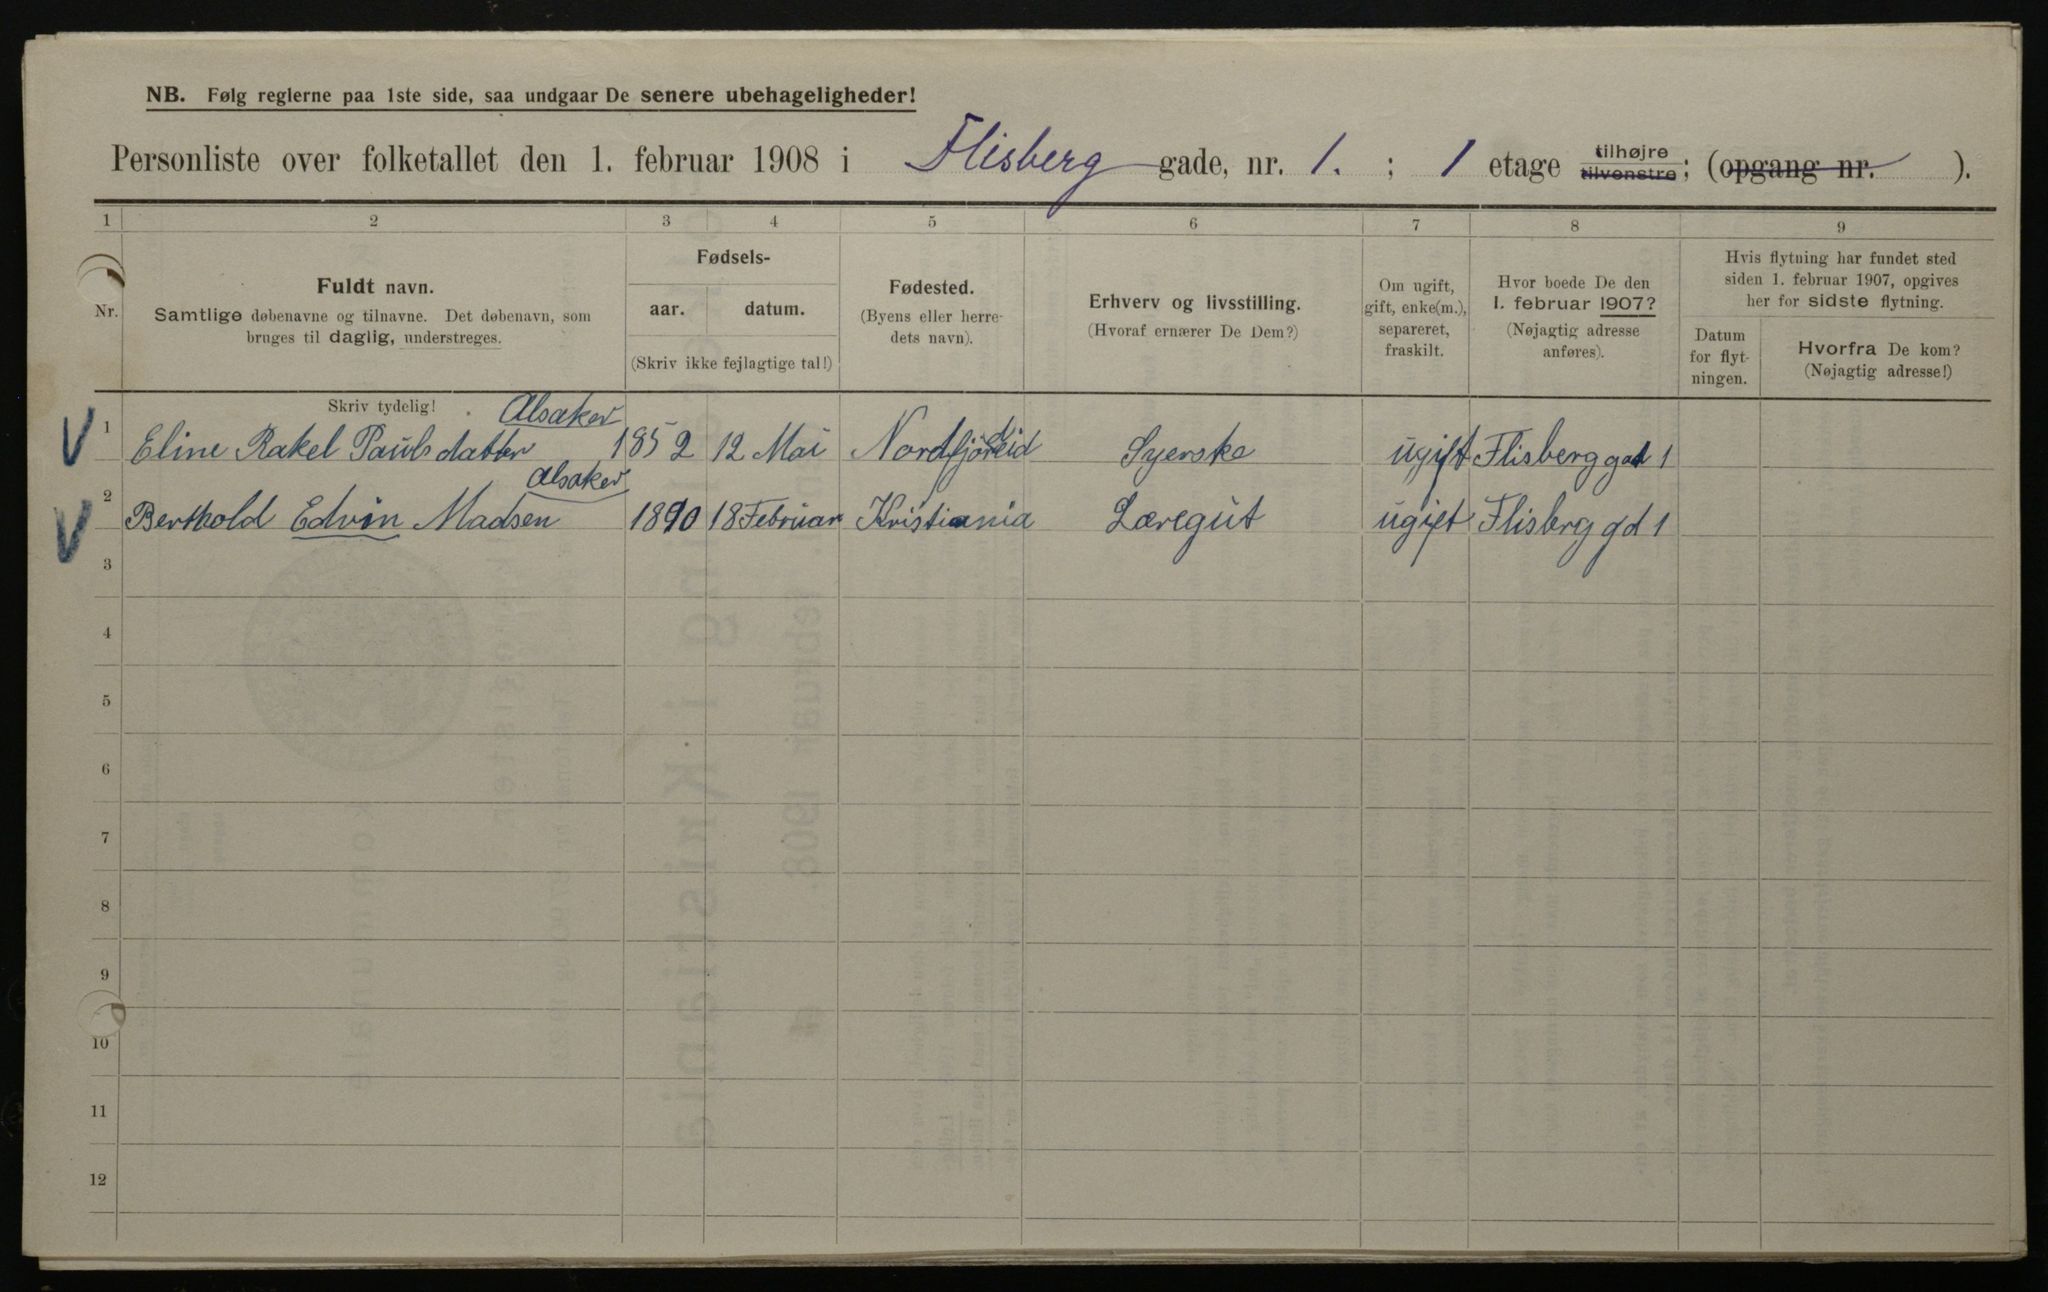 NB. Følg reglerne paa 1ste side, saa undgaar De senere ubehageligheder!
Personliste over folketallet den 1. februar 1908 i Flisberg gade, nr. 1. ; 1 etage tilhøjre tilvenstre; (opgang nr. ).
1 2 3 4 5 6 7 8 9
Nr.
Fuldt navn.
Samtlige døbenavne og tilnavne. Det døbenavn, som
bruges til daglig, understreges.
Fødsels-
aar. datum.
(Skriv ikke fejlagtige tal!)
Fødested.
(Byens eller herre-
dets navn).
Erhverv og livsstilling.
(Hvoraf ernærer De Dem?)
Om ugift,
gift, enke(m.),
separeret,
fraskilt.
Hvor boede De den
1. februar 1907?
(Nøjagtig adresse
anføres).
Hvis flytning har fundet sted
siden 1. februar 1907, opgives
her for sidste flytning.
Datum
for flyt-
ningen.
Hvorfra De kom?
(Nøjagtig adresse!)
Skriv tydelig!
Alsaker
1 Eline Rakel Paulsdatter 1852 12 Mai Nordfjordeid Syerske ugift Flisberg gad 1
Alsaker
2 Berthold Edvin Madsen 1890 18 Februar Kristiania Læregut ugift Flisberg gd 1
3
4
5
6
7
8
9
10
11
12